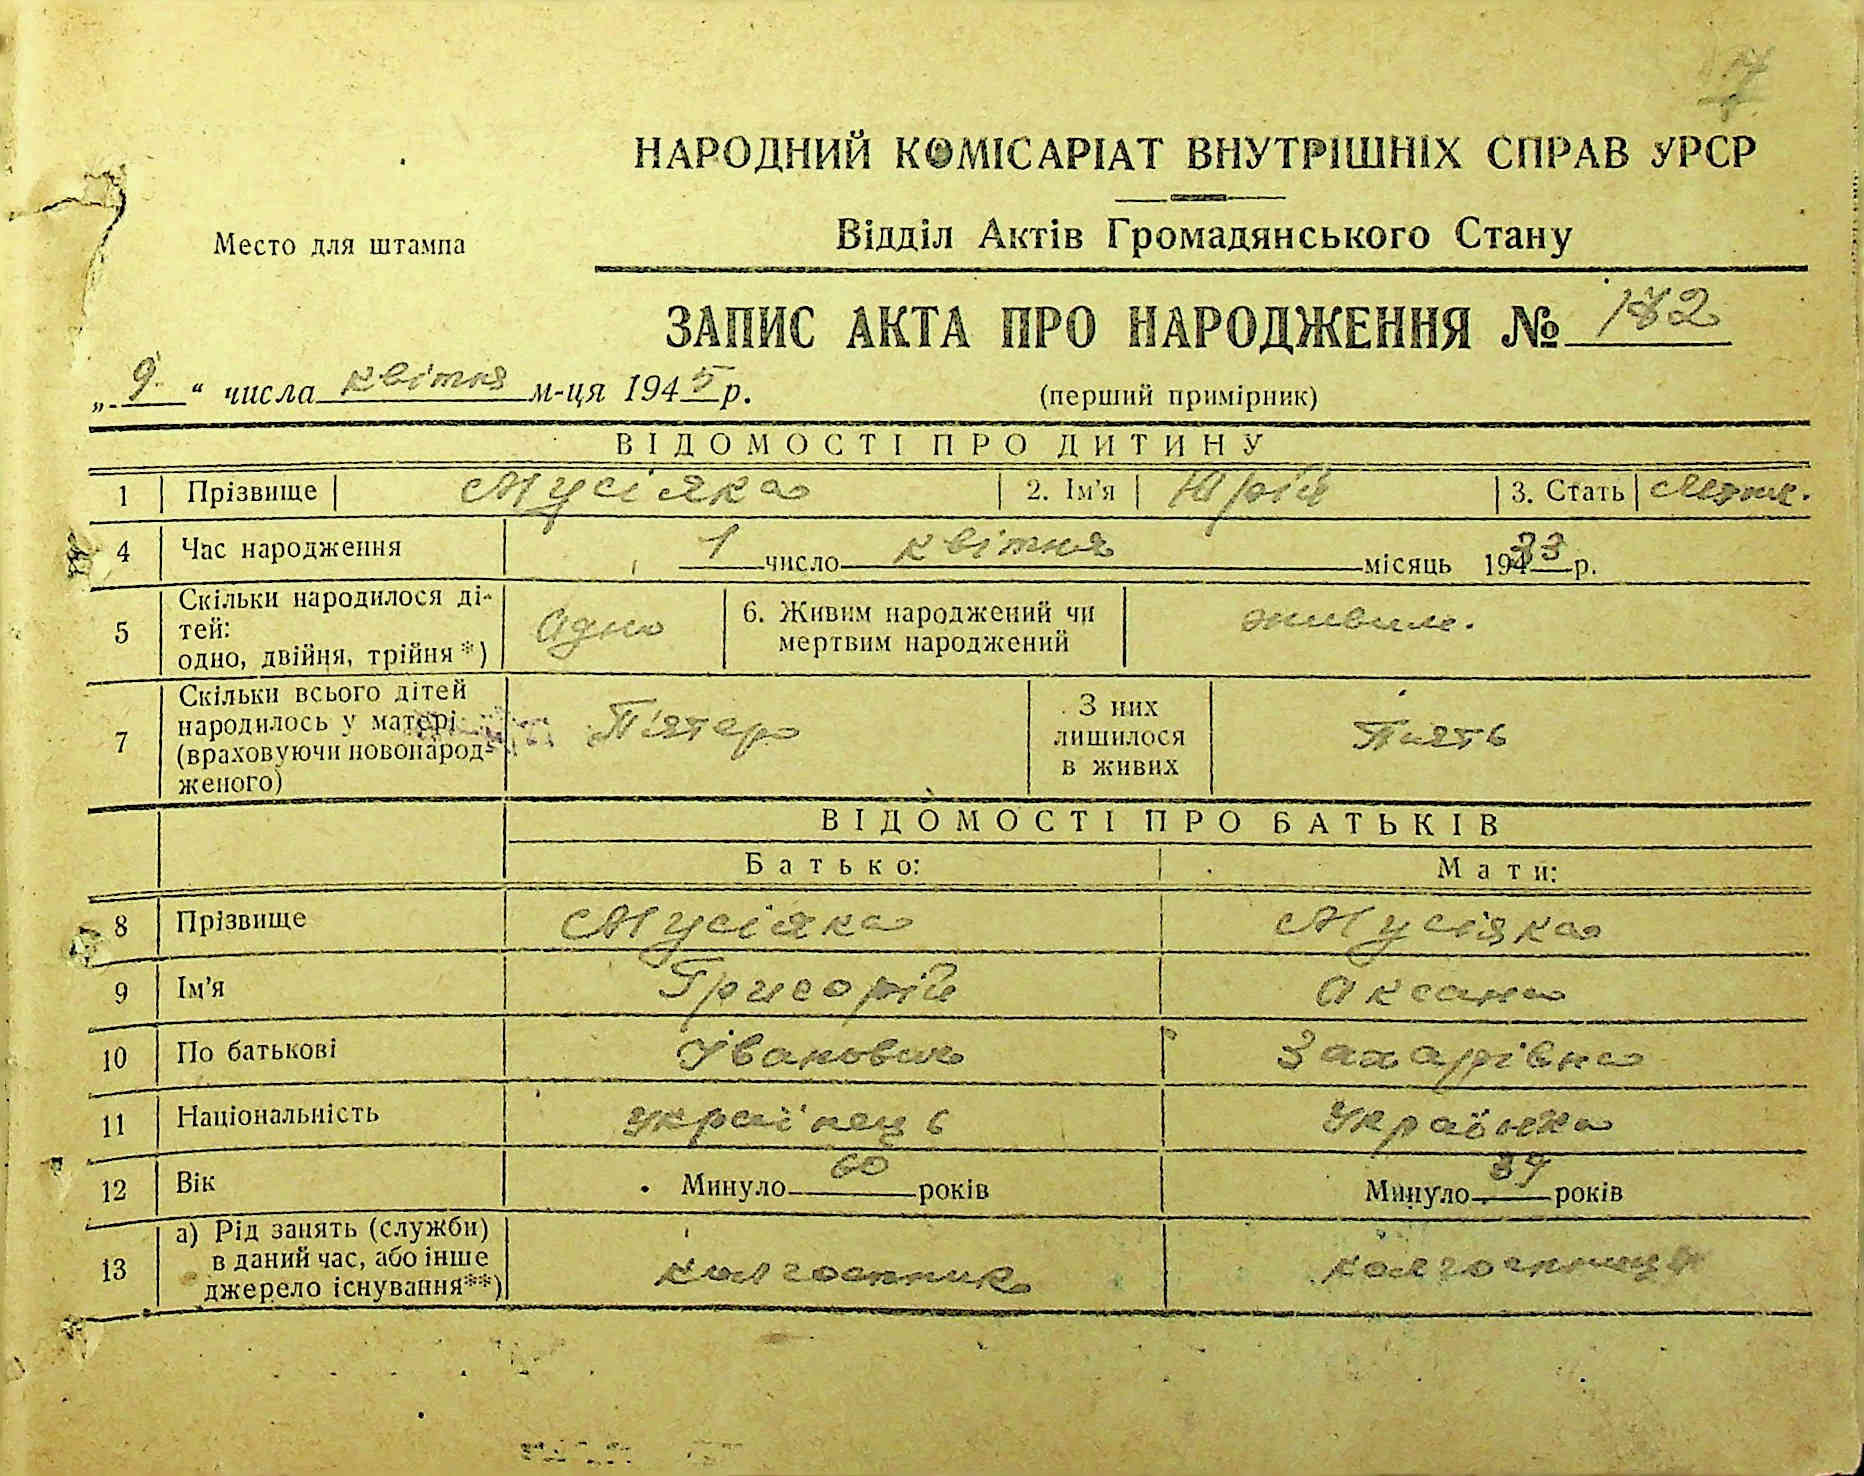 7
НАРОДНИЙ КОМІСАРІАТ ВНУТРІШНІХ СПРАВ УРСР
Место для штампа
Відділ Актів Громадянського Стану
ЗАПИС АКТА ПРО НАРОДЖЕННЯ № 182
„ 9 “ числа квітня м-ця 1945 р.
(перший примірник)
ВІДОМОСТІ ПРО ДИТИНУ
1 Прізвище Мусіяка 2. Ім'я Юрій 3. Стать
4 Час народження 1 число квітня місяць 1933 р.
5 Скільки народилося ді-
тей:
одно, двійня, трійня *) Адно 6. Живим народжений чи
мертвим народжений живим.
7 Скільки всього дітей
народилось у матері
(враховуючи новонарод-
женого) П'ятеро З них
лишилося
в живих П'ять
ВІДОМОСТІ ПРО БАТЬКІВ
Батько: Мати:
8 Прізвище Мусіяка Мусіяка
9 Ім'я Григорій Аксана
10 По батькові Іванович Захарівна
11 Національність українець Українка
12 Вік Минуло 60 років Минуло 39 років
13 а) Рід занять (служби)
в даний час, або інше
джерело існування**) колгоспник колгоспниця